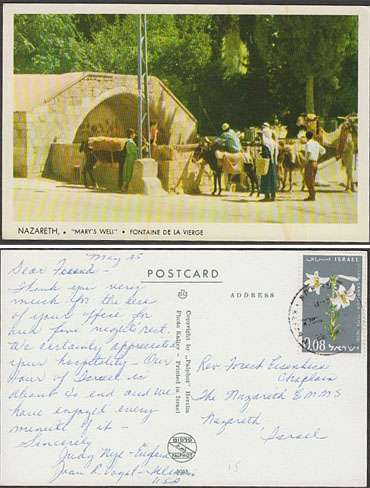 NAZARETH, • "MARY'S WELL" • FONTAINE DE LA VIERGE
May 25
Dear Friend -
Thank you very
much for the use
of your office for
our fine night's rest.
We certainly appreciated
your hospitality - Our
tour of Israel is
about to end and we
have enjoyed every
minute of it -
Sincerely
Judy Nye -
Joan R. Vogel -
U.S.A
POSTCARD
ADDRESS
Copyright by "Palphot" Herzlia
Photo - Printed in Israel
פלפוט
PALPHOT
ISRAEL
0.08
ישראל
Rev. Forest Eisenhise
Chaplain
The Nazareth E M M S
Nazareth,
Israel
15